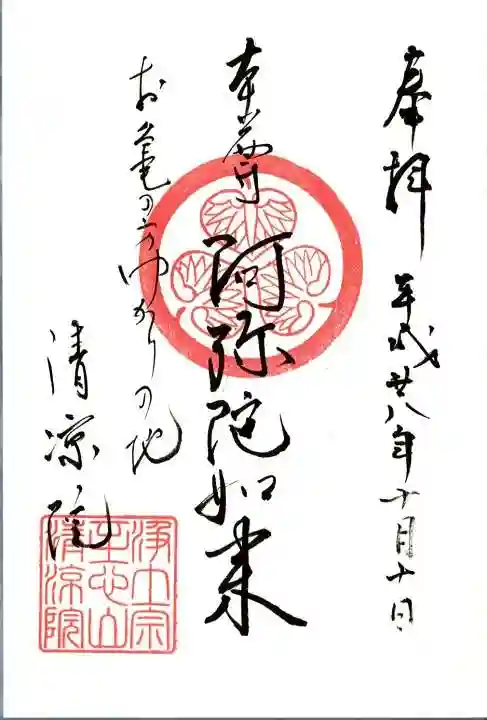 奉拝
平成廿八年十月十日
本尊
阿弥陀如来
お亀の方ゆかりの地
清涼院
浄土宗
至心山
清涼院